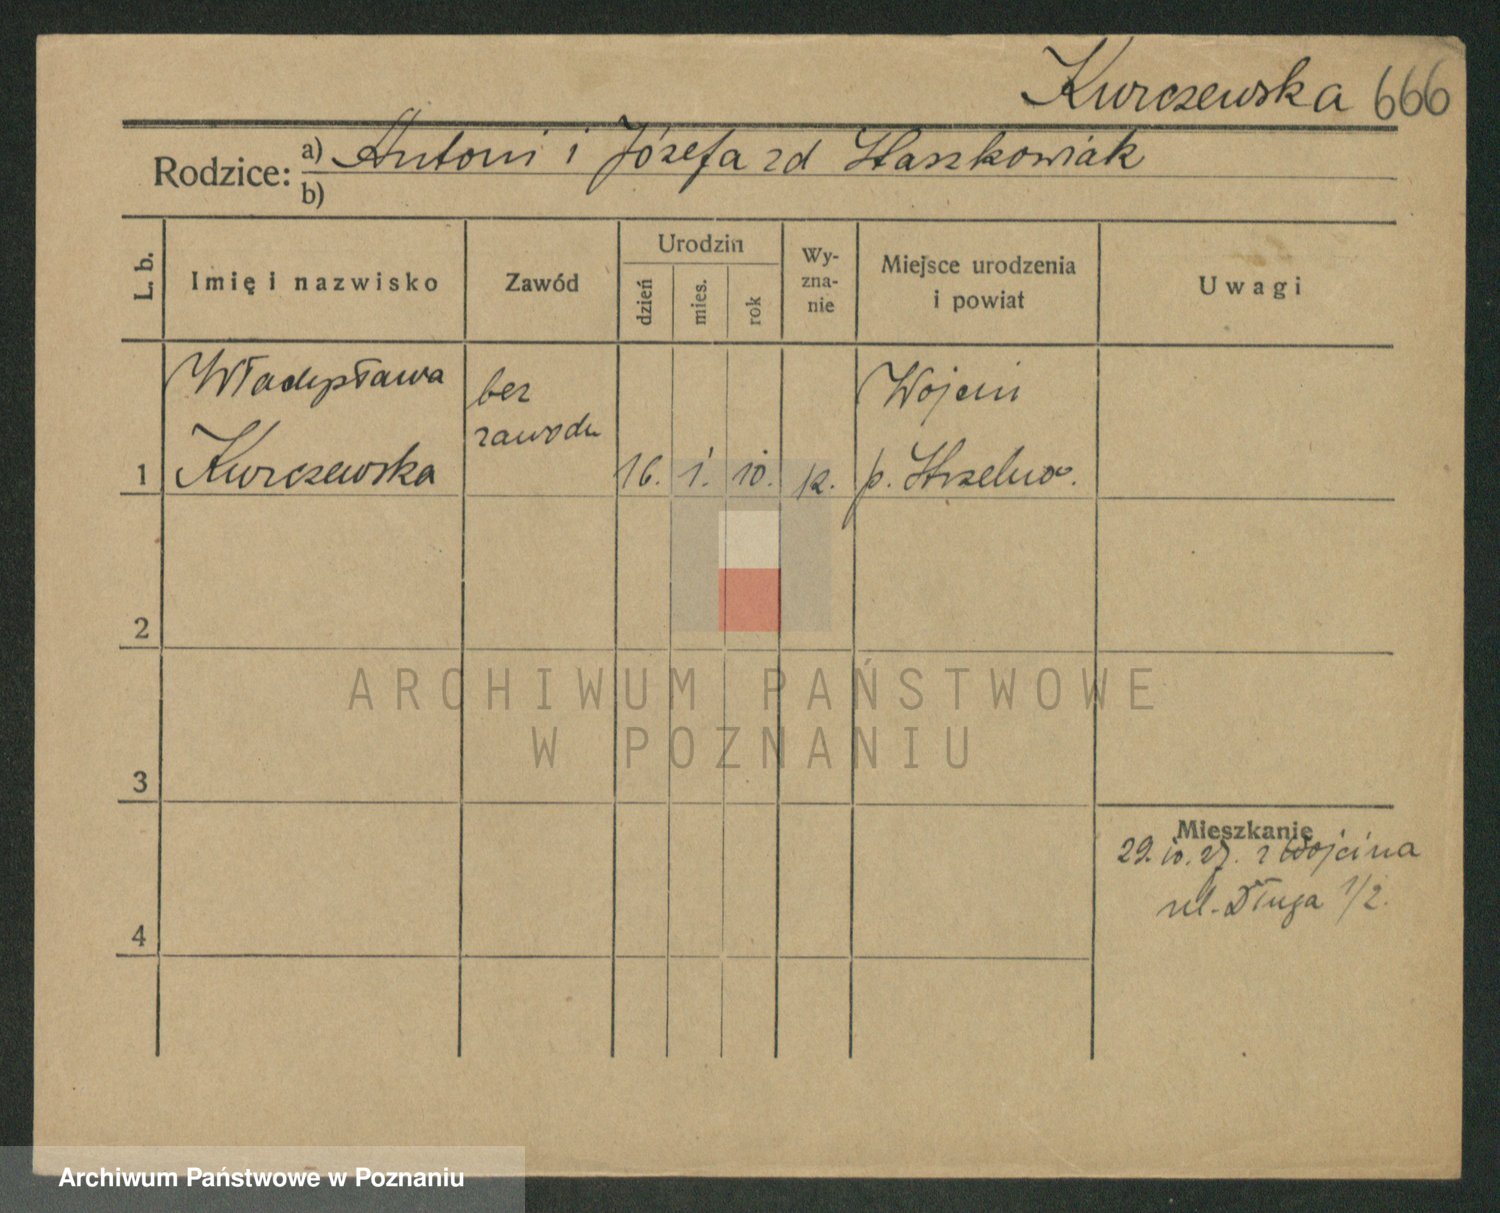 Kurczewska 666
Rodzice: a) Antoni i Józefa zd Staszkowiak
b)
L. b. Imię i nazwisko Zawód Urodzin dzień mies. rok Wyznanie Miejsce urodzenia i powiat Uwagi
Władysława bez Wojcin
zawodu
1 Kurczewska 16. 1. 10. k. p. Strzelno.
2
ARCHIWUM PAŃSTWOWE
W POZNANIU
3
Mieszkanie
29. 10. 27. z Wojcina
ul. Długa 1/2.
4
Archiwum Państwowe w Poznaniu